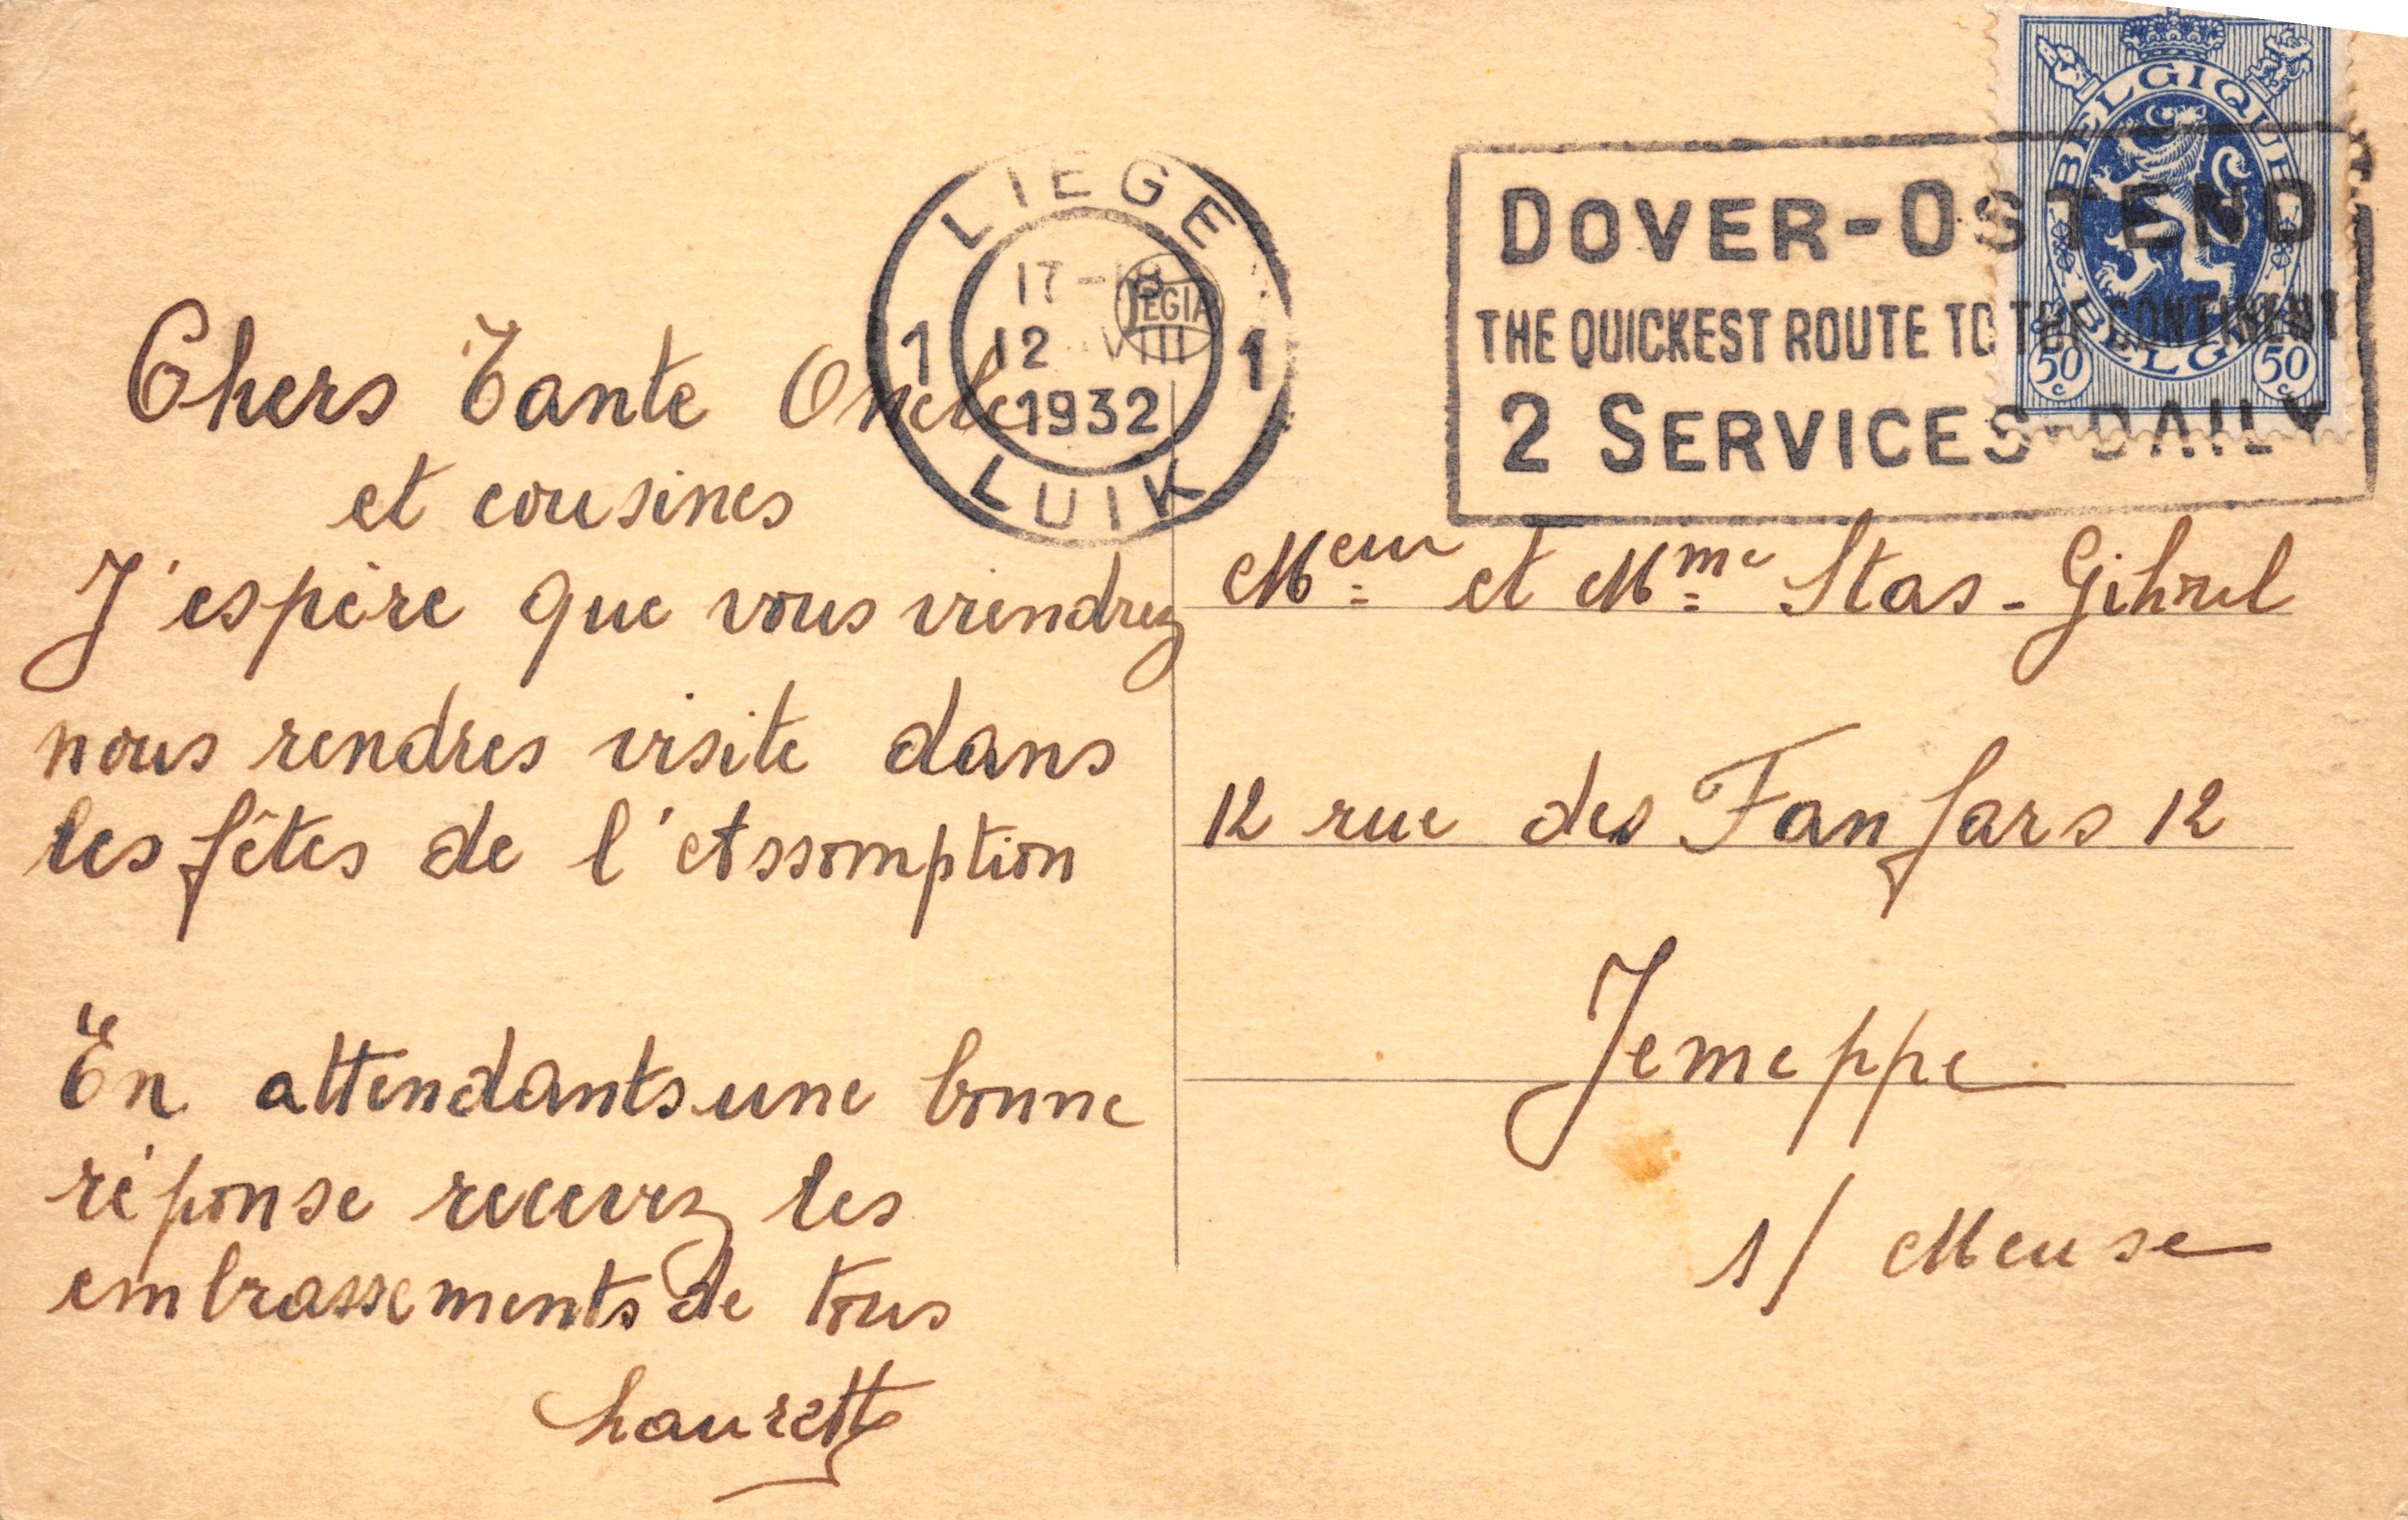 Chers Tante Oncle
et cousines
J'espère que vous viendrez
nous rendres visite dans
les fêtes de l'Assomption
En attendants une bonne
réponse recevez les
embrassements de tous
Laurette
LIEGE
17-18
12 VIII
1932
1 1
LUIK
LEGIA
DOVER-OSTEND
THE QUICKEST ROUTE TO THE CONTINENT
2 SERVICES DAILY
BELGIQUE
BELGIË
50c 50c
Meur et Mme Stas-
12 rue des Fanfars 12
Jemeppe
s/ Meuse